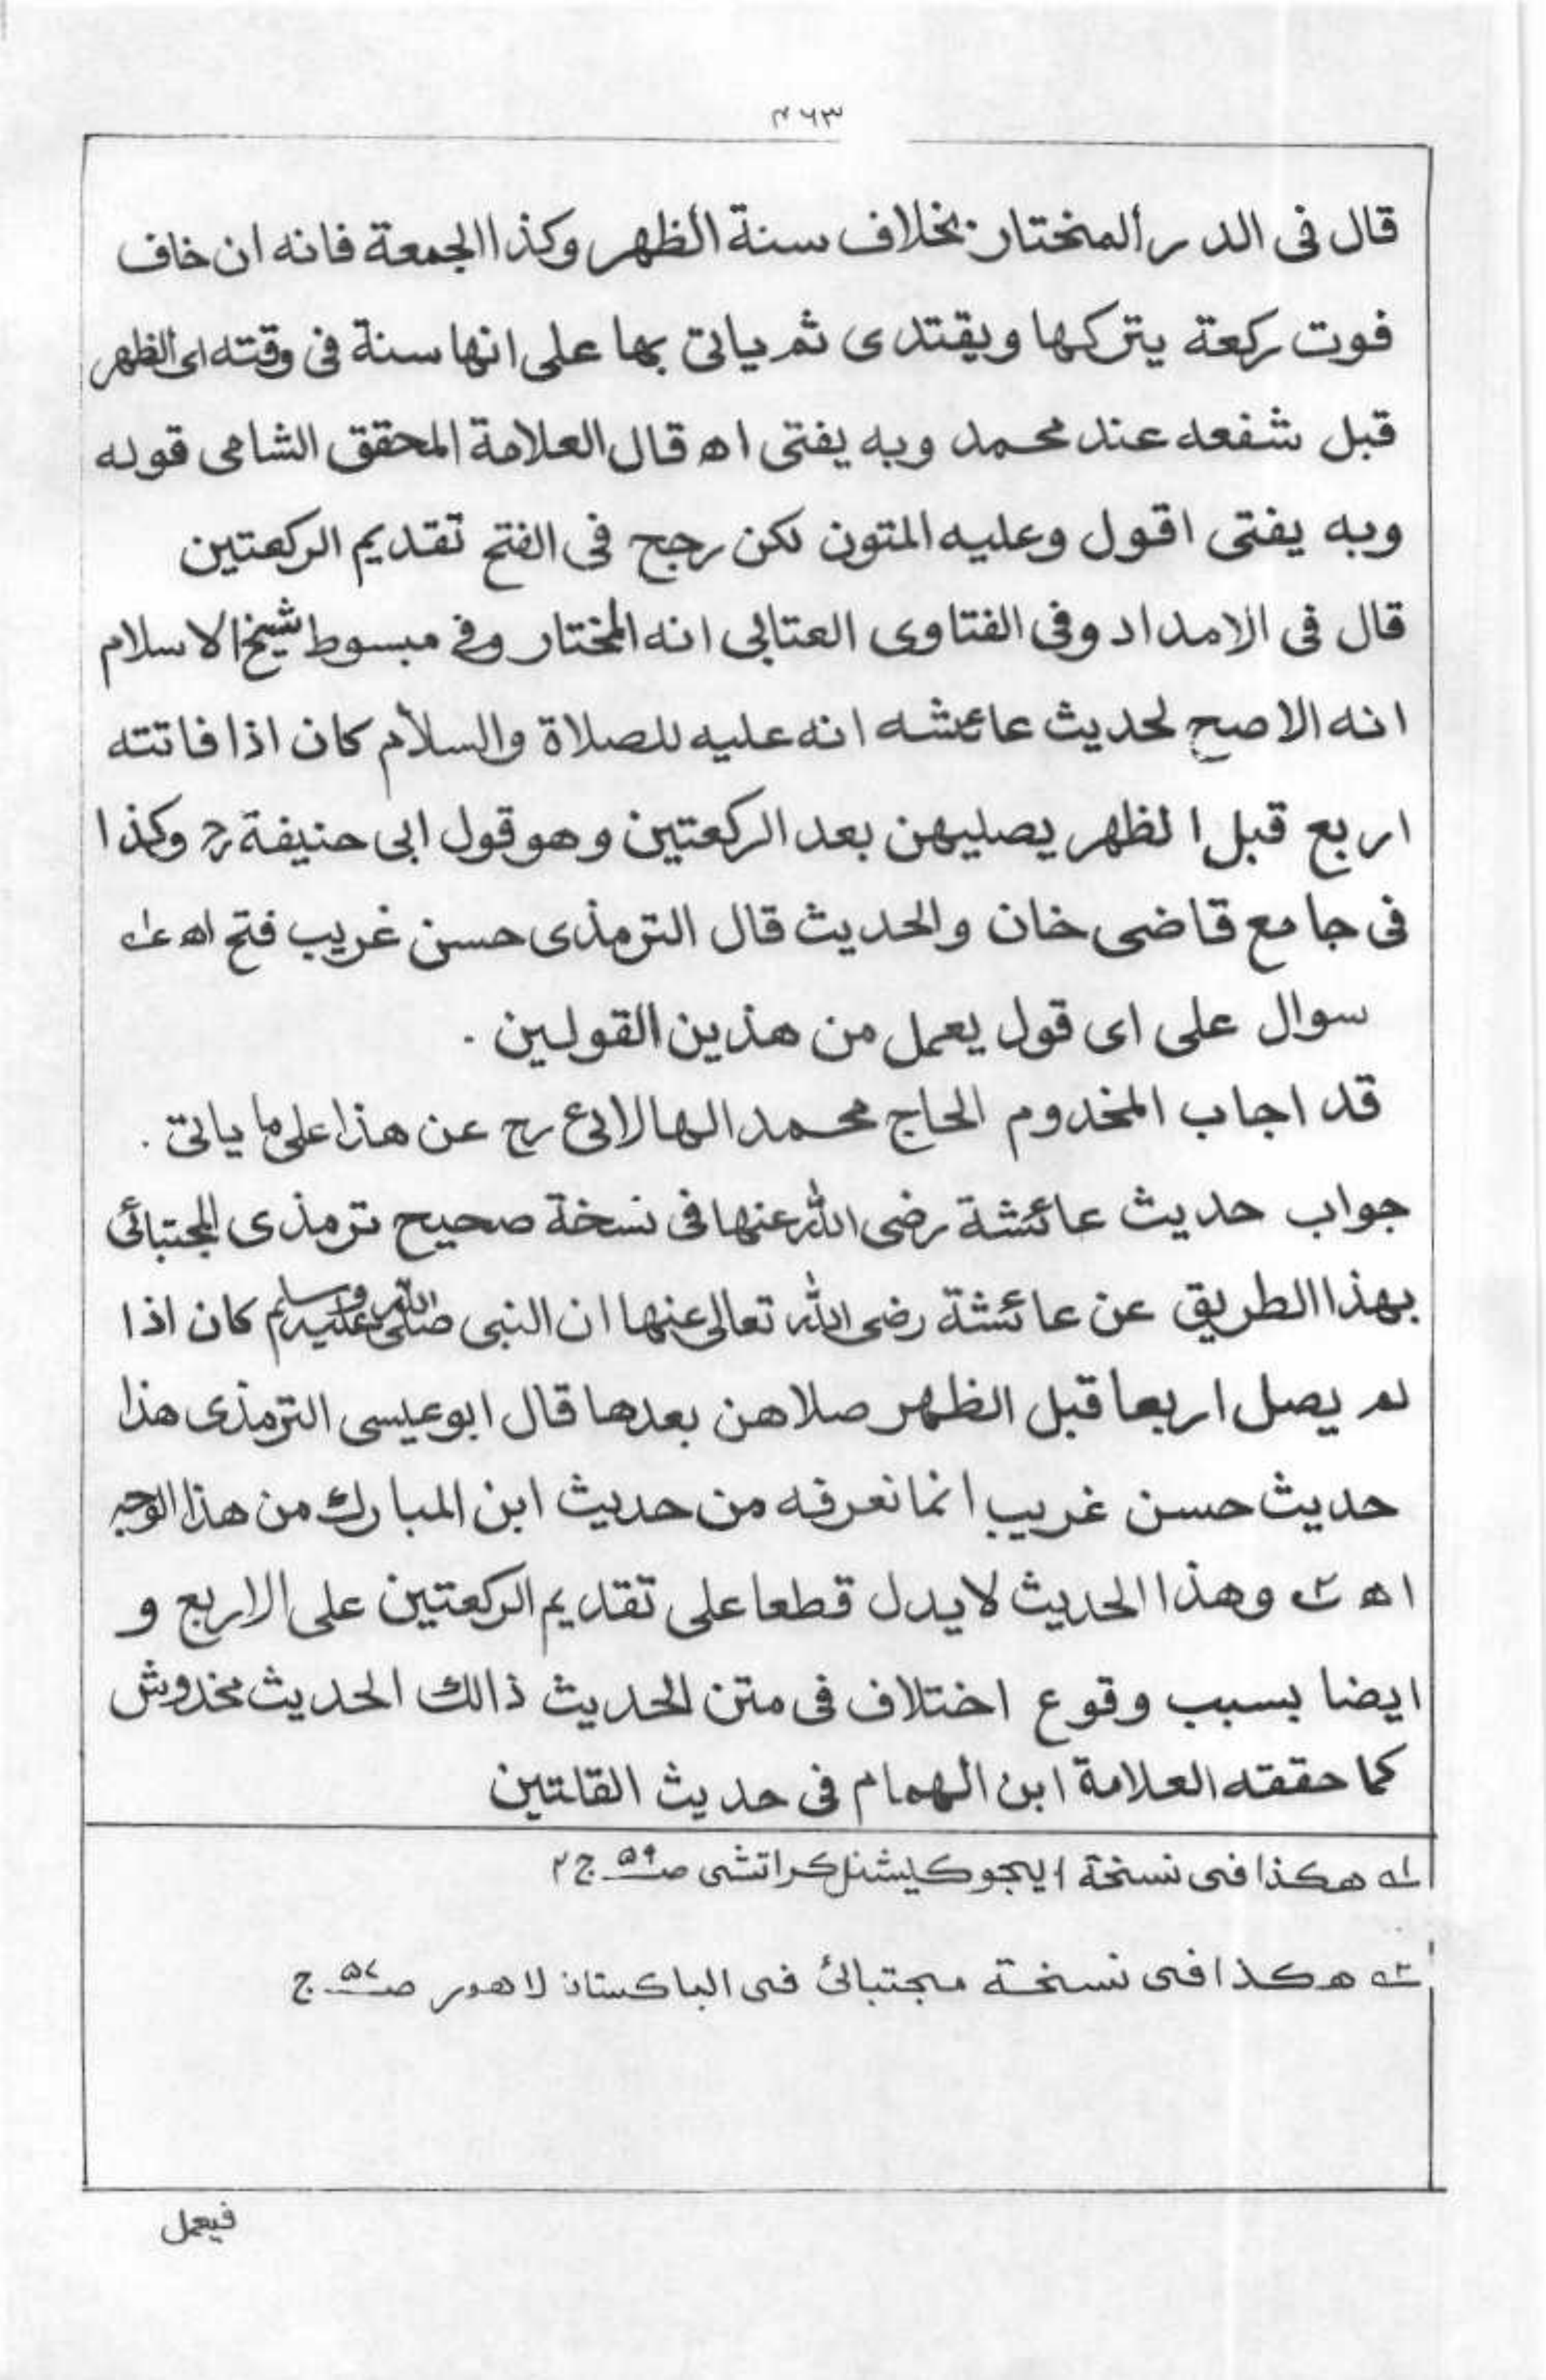 ۴۶۳
قال فى الدر المختار بخلاف سنة الظهر وكذا الجمعة فانه ان خاف
فوت ركعة يتركها ويقتدى ثم ياتى بها على انها سنة فى وقته اى الظهر
قبل شفعه عند محمد وبه يفتى اه قال العلامة المحقق الشامى قوله
وبه يفتى اقول وعليه المتون لكن رجح فى الفتح تقديم الركعتين
قال فى الامداد وفى الفتاوى العتابى انه المختار وفى مبسوط شيخ الاسلام
انه الاصح لحديث عائشه انه عليه للصلاة والسلام كان اذا فاتته
اربع قبل الظهر يصليهن بعد الركعتين وهو قول ابى حنيفة رح وكذا
فى جامع قاضى خان والحديث قال الترمذى حسن غريب فتح اه ١ـه
سوال على اى قول يعمل من هذين القولين .
قد اجاب المخدوم الحاج محمد الهالائى رح عن هذا على ما ياتى .
جواب حديث عائشة رضى الله عنها فى نسخة صحيح ترمذى المجتبائى
بهذا الطريق عن عائشة رضى الله تعالى عنها ان النبى صلى الله عليه وسلم كان اذا
لم يصل اربعا قبل الظهر صلاهن بعدها قال ابو عيسى الترمذى هذا
حديث حسن غريب انما نعرفه من حديث ابن المبارك من هذا الوجه
اه ٢ـه وهذا الحديث لا يدل قطعا على تقديم الركعتين على الاربع و
ايضا بسبب وقوع اختلاف فى متن الحديث ذالك الحديث مخدوش
كما حققه العلامة ابن الهمام فى حديث القلتين
١ـه هكذا فى نسخة ايجوكيشنل كراتشى صـ۵۹ ج ۲
٢ـه هكذا فى نسخة مجتبائى فى الباكستان لاهور صـ۵۷ ج
فيعمل